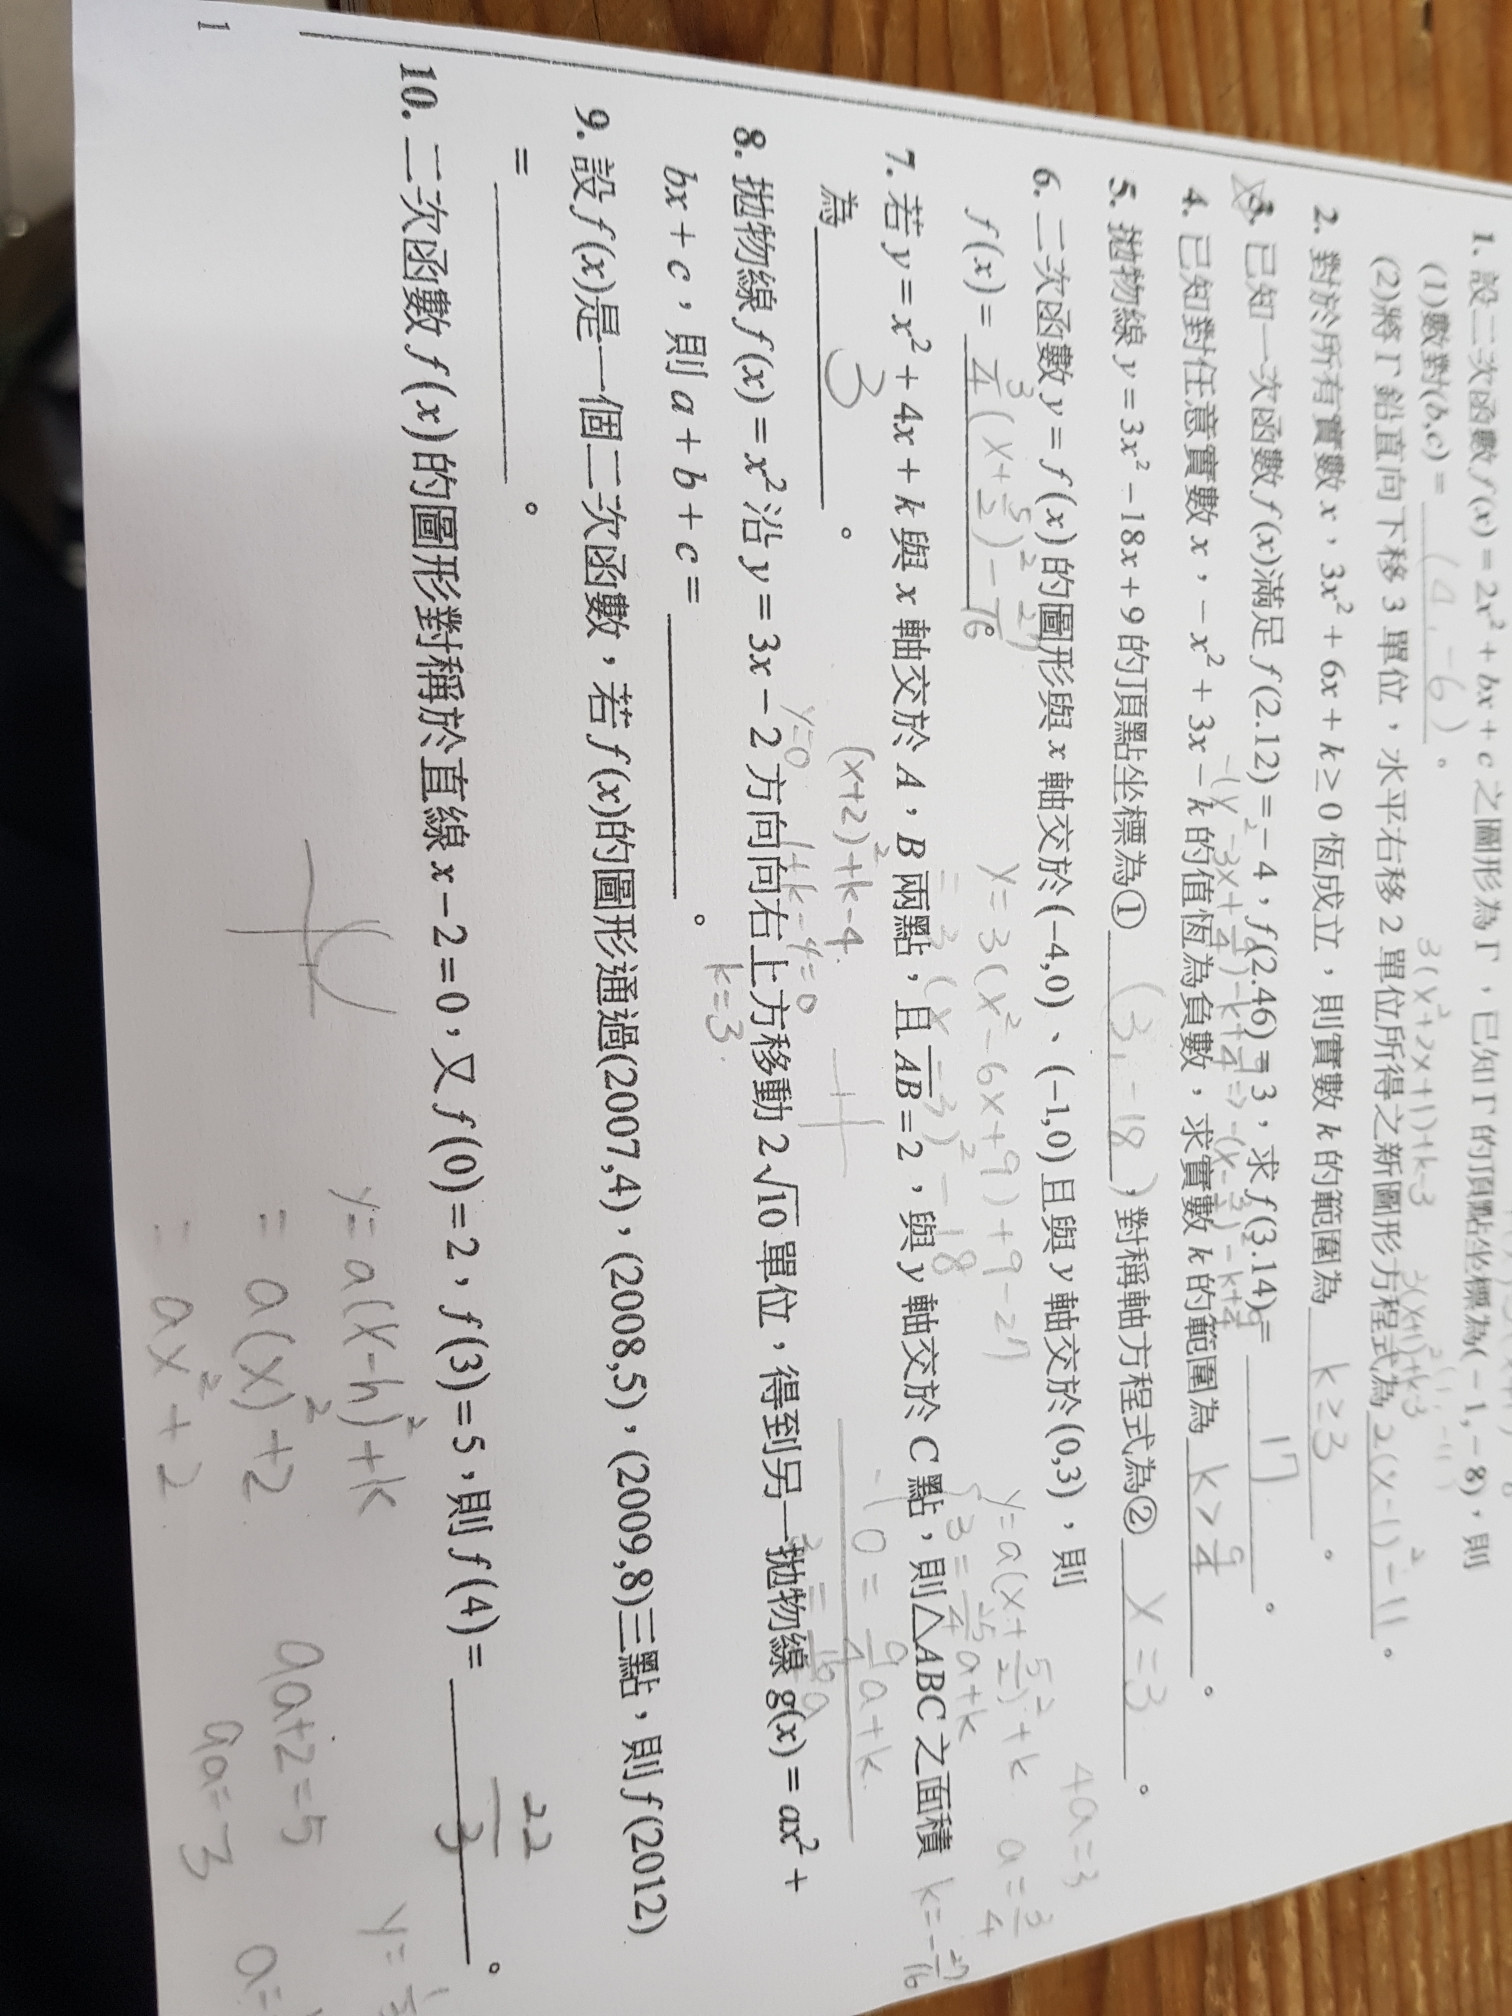 1. 設二次函數 f(x) = 2x² + bx + c 之圖形為 Γ，已知 Γ 的頂點坐標為(−1,−8)，則
(1)數對(b,c) = (4,−6)。
(2)將 Γ 鉛直向下移 3 單位，水平右移 2 單位所得之新圖形方程式為 2(x−1)²−11。
3(x²+2x+1)+k−3
2(x+1)²+k−3
2. 對於所有實數 x，3x² + 6x + k ≥ 0 恆成立，則實數 k 的範圍為 k≥3。
3. 已知一次函數 f(x)滿足 f(2.12) = − 4，f(2.46) = 3，求 f(3.14) = 17。
4. 已知對任意實數 x，− x² + 3x − k 的值恆為負數，求實數 k 的範圍為 k>9/4。
5. 拋物線 y = 3x² − 18x + 9 的頂點坐標為① (3,−18)，對稱軸方程式為② x=3。
y=3(x²−6x+9)+9−27
=3(x−3)²−18
6. 二次函數 y = f(x) 的圖形與 x 軸交於(−4,0)、(−1,0)且與 y 軸交於(0,3)，則
f(x) = 3/4(x+5/2)²−27/16。
y=a(x+5/2)²+k
3=25/4a+k
0=9/4a+k
4a=3
a=3/4
k=−27/16
7. 若 y = x² + 4x + k 與 x 軸交於 A，B 兩點，且 AB = 2，與 y 軸交於 C 點，則△ABC 之面積
為 3。
(x+2)²+k−4
y=0
1+k−4=0
k=3
8. 拋物線 f(x) = x² 沿 y = 3x − 2 方向向右上方移動 2√10 單位，得到另一拋物線 g(x) = ax² +
bx + c，則 a + b + c = ______。
9. 設 f(x)是一個二次函數，若 f(x)的圖形通過(2007,4)，(2008,5)，(2009,8)三點，則 f(2012)
= ______。
10. 二次函數 f(x) 的圖形對稱於直線 x − 2 = 0，又 f(0) = 2，f(3) = 5，則 f(4) = 22/3。
y=a(x−h)²+k
=a(x)²+2
=ax²+2
9a+2=5
9a=3
1